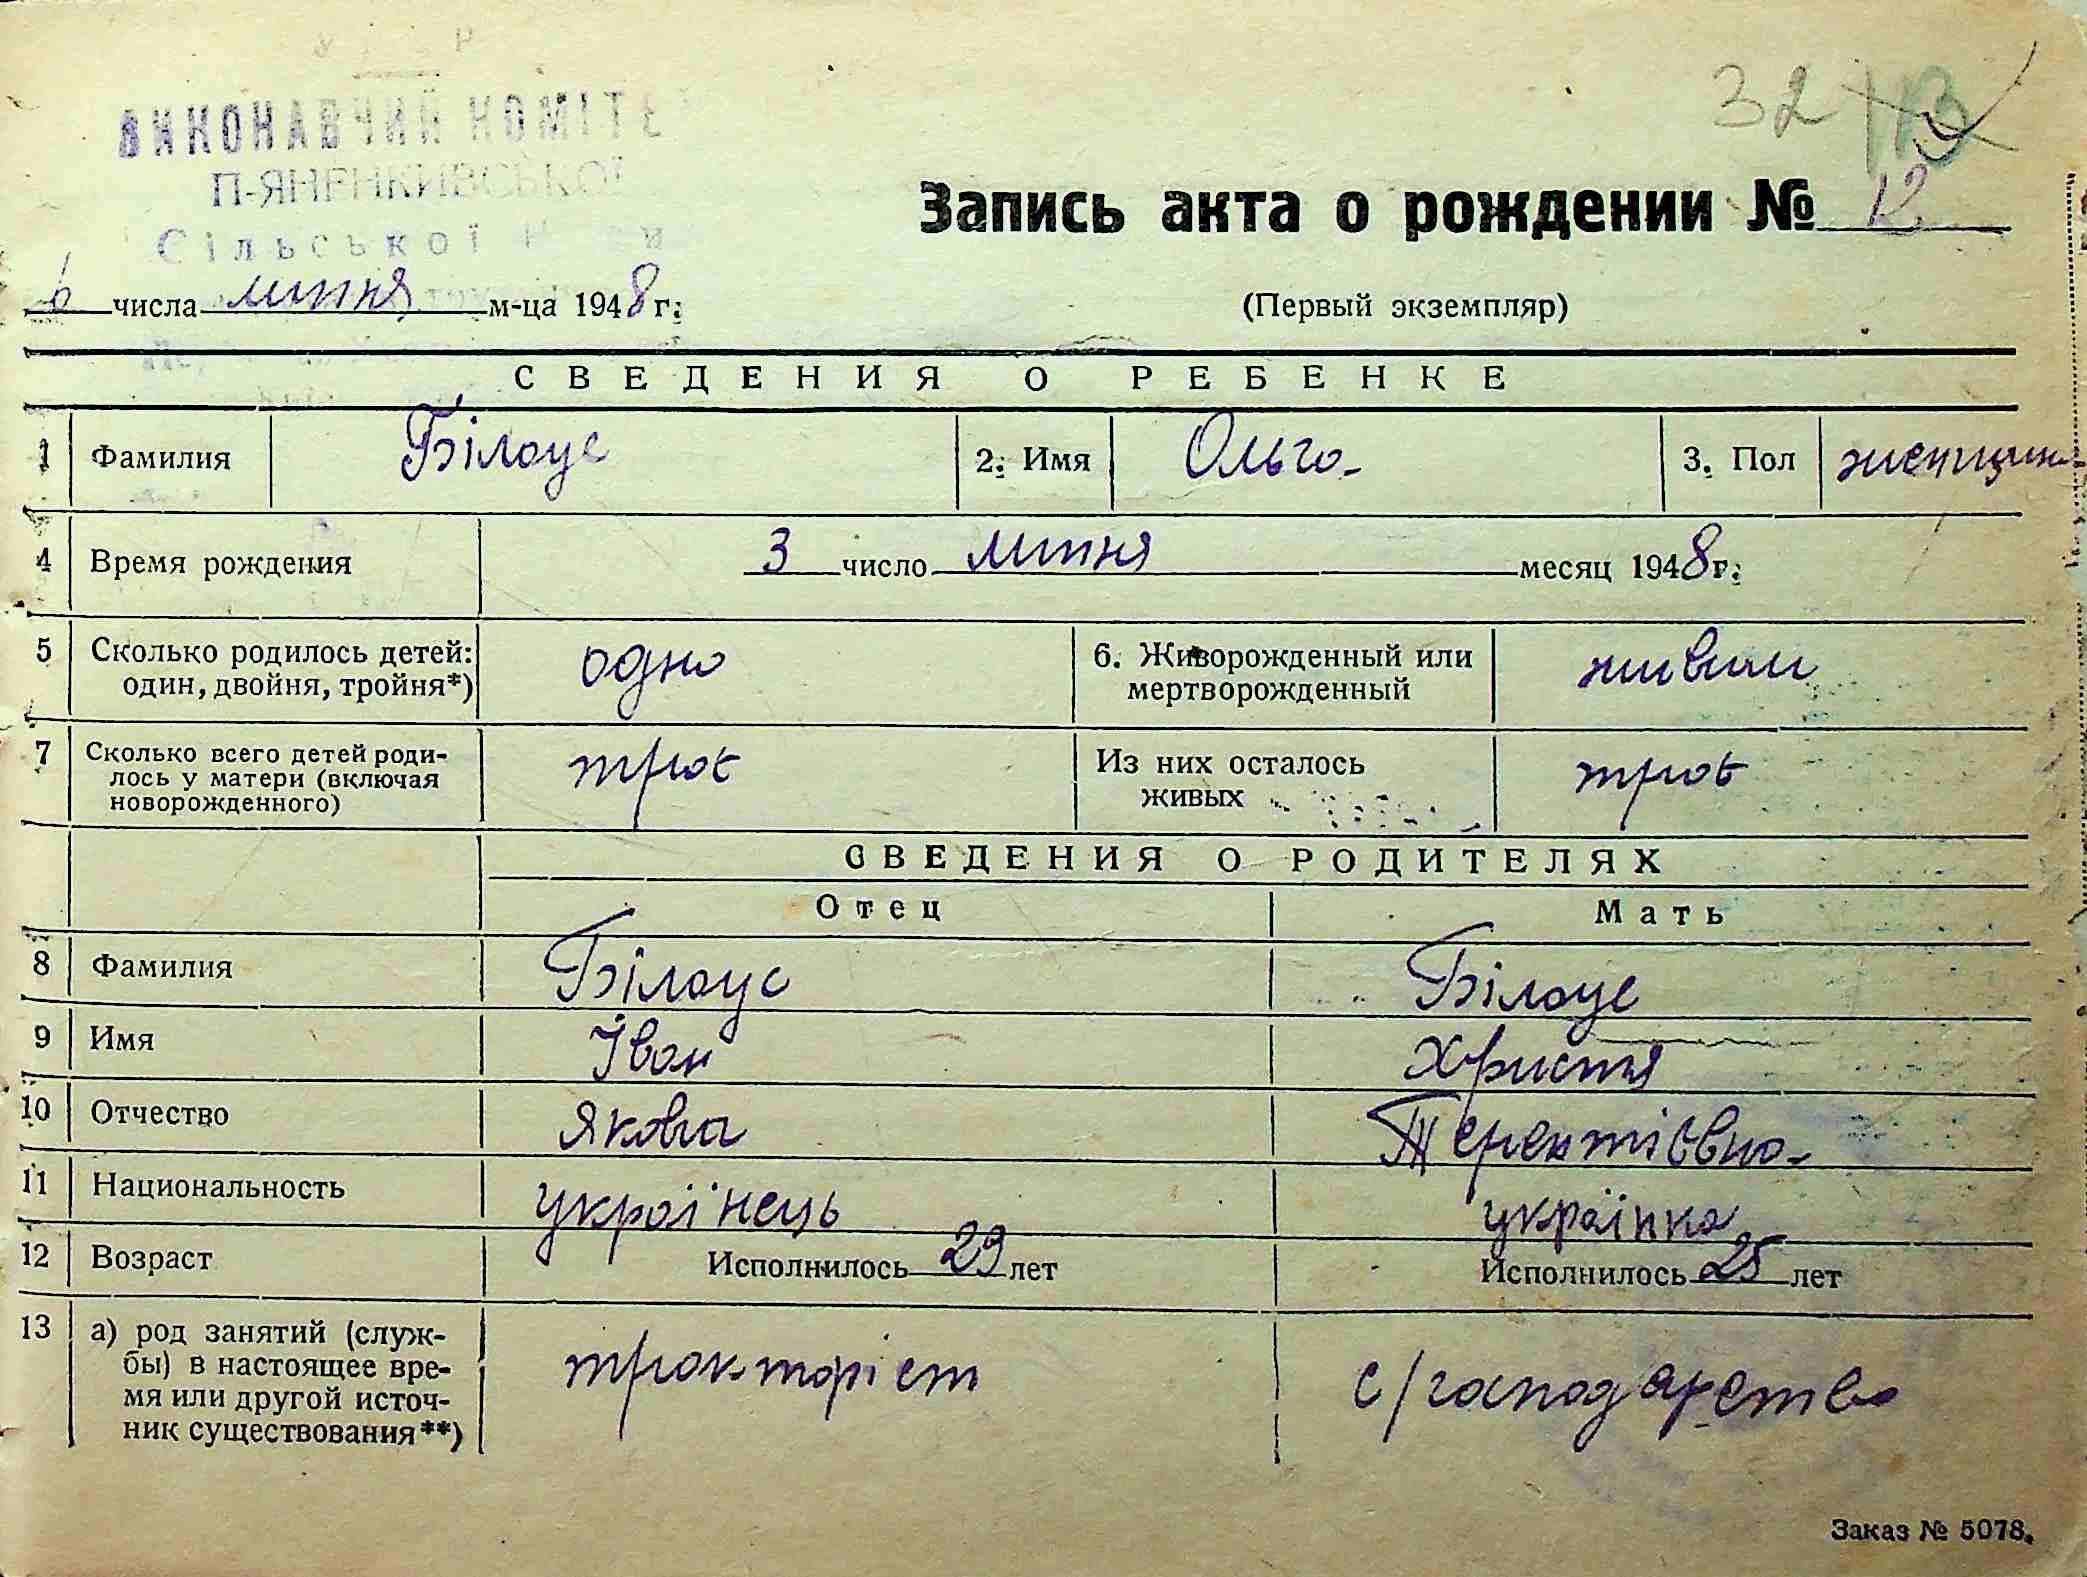 ВИКОНАВЧИЙ КОМІТЕ
П-ЯНЕНКИВСЬКОЇ
Сільської
32
Запись акта о рождении № 12
6 числа липня м-ца 1948 г.
(Первый экземпляр)
СВЕДЕНИЯ О РЕБЕНКЕ
1 Фамилия Білоус 2. Имя Ольга 3. Пол женщина
4 Время рождения 3 число липня месяц 1948 г.
5 Сколько родилось детей: один, двойня, тройня*) одно 6. Живорожденный или мертворожденный живим
7 Сколько всего детей родилось у матери (включая новорожденного) троє Из них осталось живых троє
СВЕДЕНИЯ О РОДИТЕЛЯХ
Отец Мать
8 Фамилия Білоус Білоус
9 Имя Іван Христя
10 Отчество Якович Терентієвна
11 Национальность українець українка
12 Возраст Исполнилось 29 лет Исполнилось 25 лет
13 а) род занятий (службы) в настоящее время или другой источник существования**) тракторіст с/господарство
Заказ № 5078.